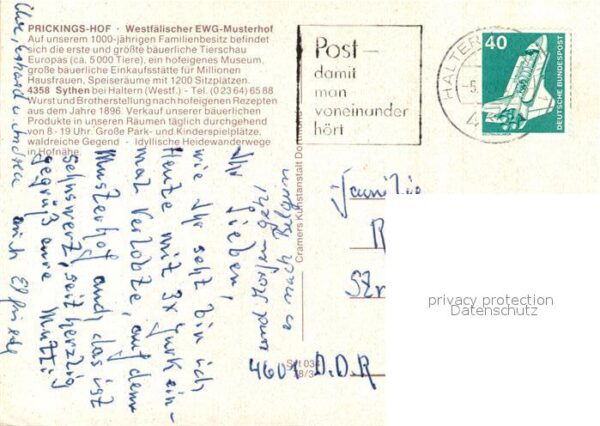 PRICKINGS-HOF · Westfälischer EWG-Musterhof
Auf unserem 1000-jährigen Familienbesitz befindet
sich die erste und größte bäuerliche Tierschau
Europas (ca. 5000 Tiere), ein hofeigenes Museum,
große bäuerliche Einkaufsstätte für Millionen
Hausfrauen, Speiseräume mit 1200 Sitzplätzen.
4358 Sythen bei Haltern (Westf.) - Tel. (0 23 64) 65 88
Wurst und Brotherstellung nach hofeigenen Rezepten
aus dem Jahre 1896. Verkauf unserer bäuerlichen
Produkte in unseren Räumen täglich durchgehend
von 8 - 19 Uhr. Große Park- und Kinderspielplätze,
waldreiche Gegend · Idyllische Heidewanderwege
in Hofnähe.
Post –
damit
man
voneinander
hört
HALTER
40
DEUTSCHE BUNDESPOST
Cramers Kunstanstalt Dortmund
Ihr Lieben,
wie Ihr seht bin ich
Heute mit
mal Verlobte, auf dem
Musterhof auch das ist
sehnswert, seit herzlig
gegrüß eure Mutti
auch Elfriede
und Morgen geht
es nach Belgien
Familie
R
Str
4601 D.D.R
privacy protection
Datenschutz